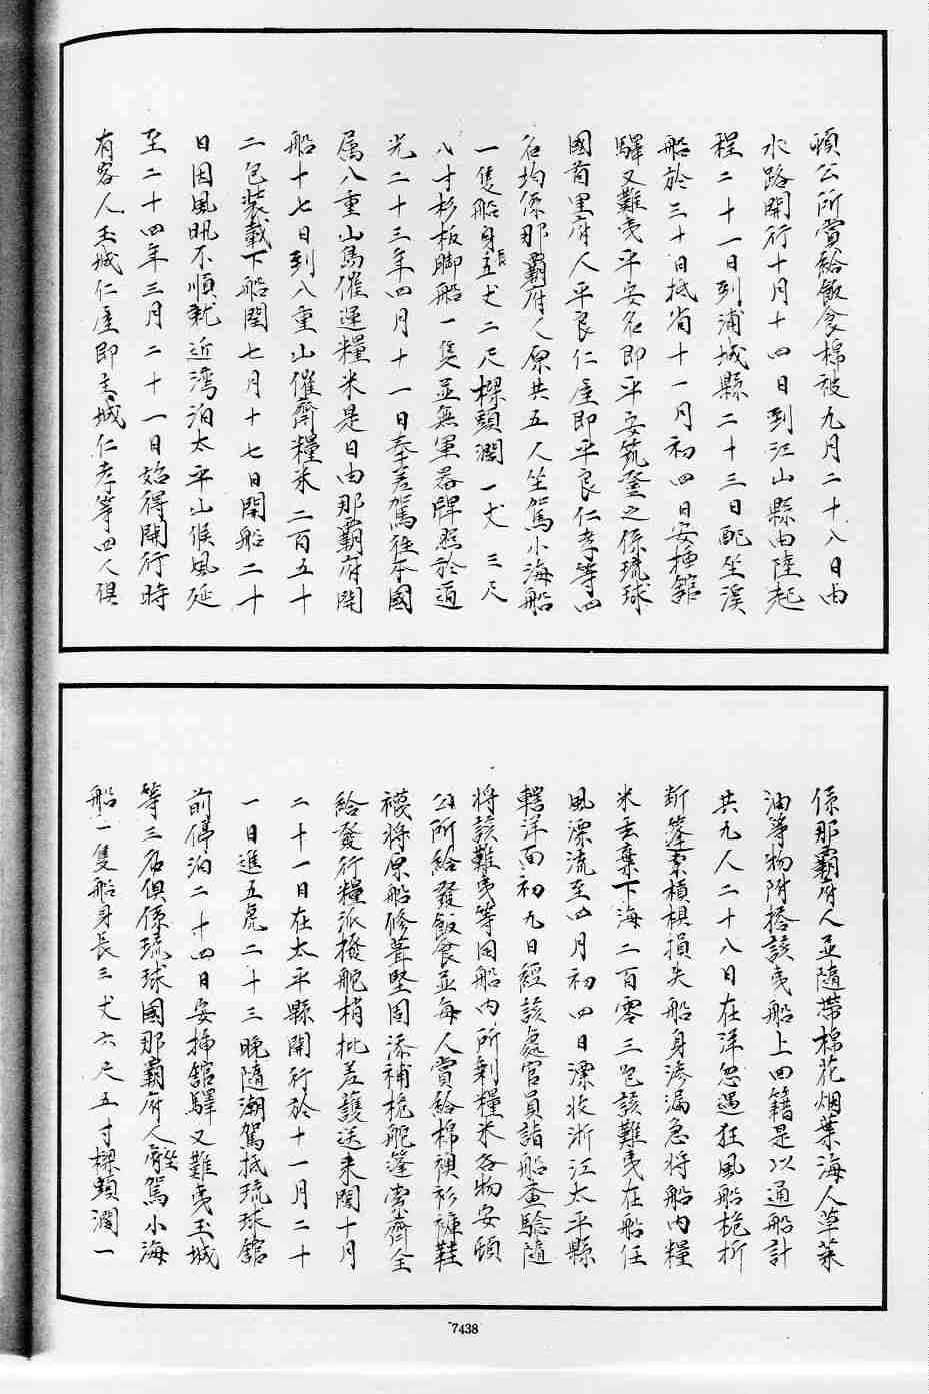 頓公所賞給飯食棉被九月二十八日由
水路開行十月十四日到江山縣由陸起
程二十一日到浦城縣二十三日配坐溪
船於三十日抵省十一月初四日安插舘
驛又難夷平安名即平安筑登之係琉球
國首里府人平良仁屋即平良仁孝等四
名均係那霸府人原共五人坐駕小海船
一隻船身長五丈二尺樑頭濶一丈三尺
八寸杉板脚船一隻並無軍器牌照於道
光二十三年四月十一日奉差駕往本國
属八重山島催運糧米是日由那霸府開
船十七日到八重山催齊糧米二百五十
二包裝載下船閏七月十七日開船二十
日因風汛不順就近灣泊太平山候風延
至二十四年三月二十一日始得開行時
有客人玉城仁屋即玉城仁孝等四人俱
係那霸府人並隨帶棉花烟葉海人草菜
油等物附搭該夷船上回籍是以通船計
共九人二十八日在洋忽遇狂風船桅折
断篷索槓椇損失船身滲漏急將船內糧
米丟棄下海二百零三包該難夷在船任
風漂流至四月初四日漂收浙江太平縣
轄洋面初九日經該處官員詣船查驗隨
將該難夷等同船內所剩糧米各物安頓
公所給發飯食並每人賞給棉襖衫褲鞋
襪將原船修葺堅固添補桅舵篷索齊全
給發行糧派撥舵梢批差護送來閩十月
二十一日在太平縣開行於十一月二十
一日進五虎二十三晚隨潮駕抵琉球舘
前停泊二十四日安插舘驛又難夷玉城
等三名俱係琉球國那霸府人坐駕小海
船一隻船身長三丈六尺五寸樑頭濶一
7438